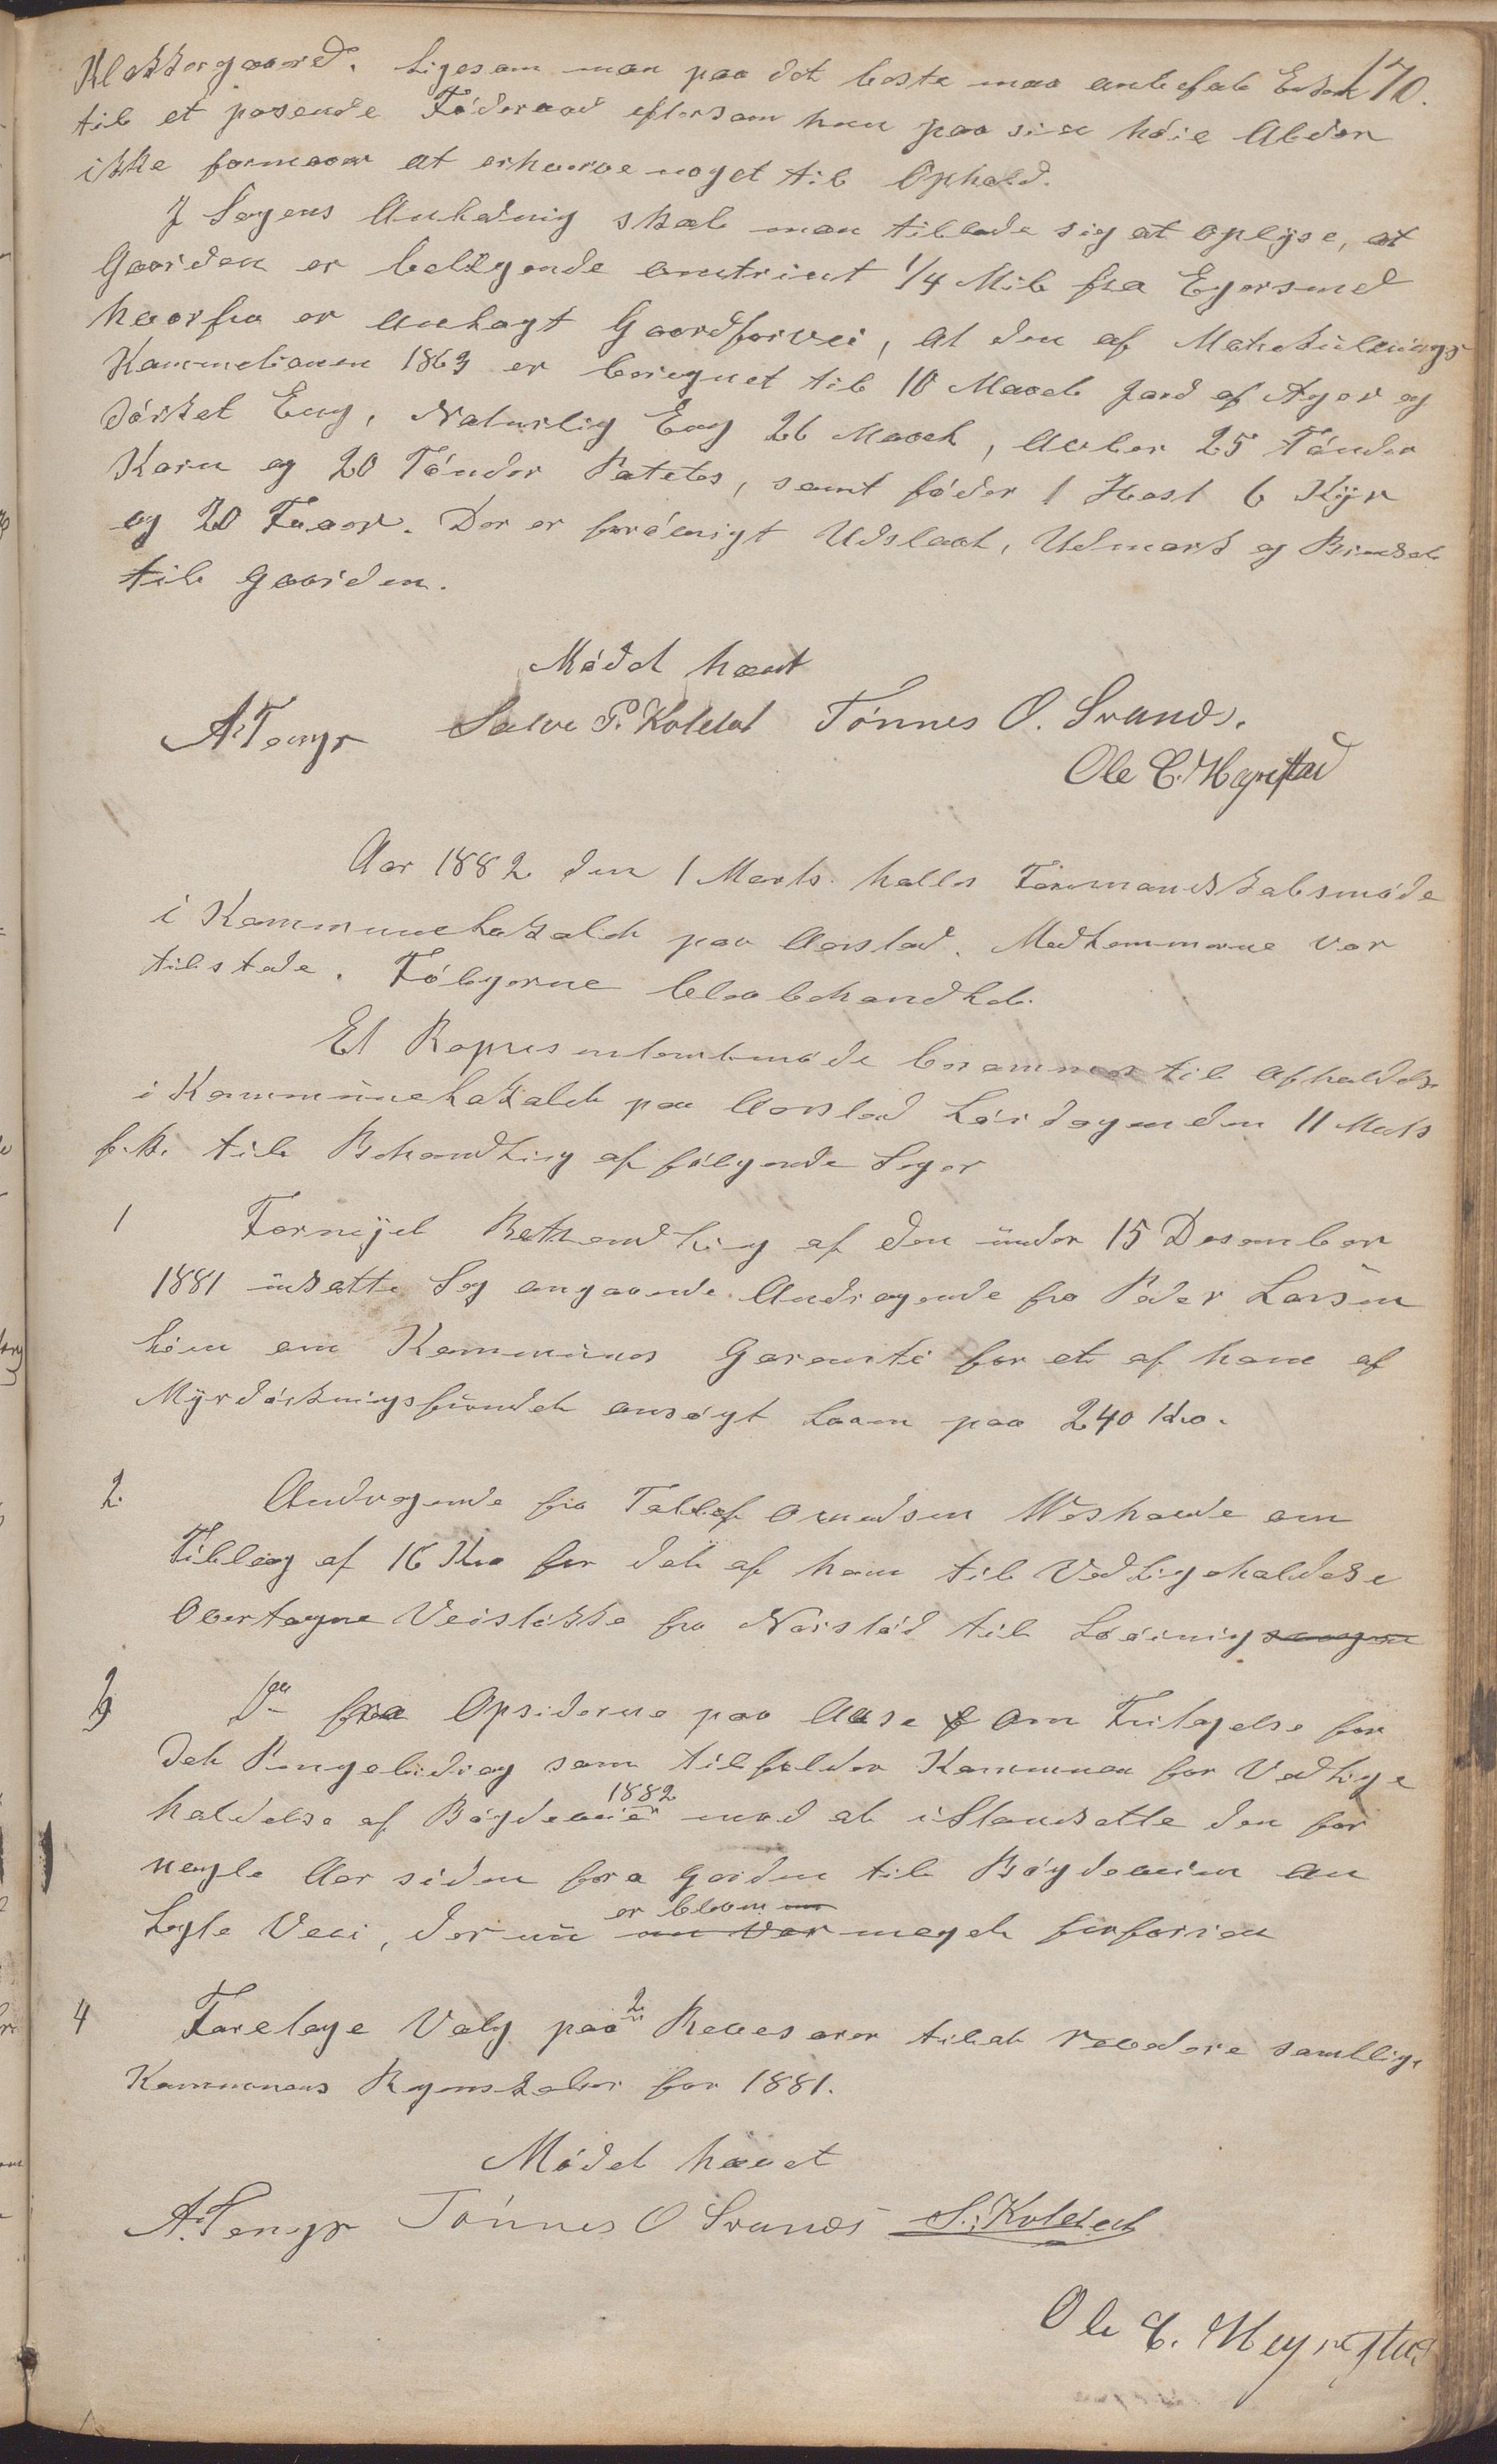 170.
Klokkergaard. Ligesom man paa det beste maa anbefale Enken
til et pasende Föderaad eftersom hun paa sin höie Alder
ikke formaar at erhverve noget til Ophold.
I Sagens Anledning skal man tillade sig at oplyse, at
Gaarden er beliggende omtrient 1/4 Mil fra Egersund
hvorfra er anlagt Gaardforvei, at den af Matrikulerings
Kommitionen 1863 er beregnet til 10 Maal Jord af Ager og
dörket Eng, Naturlig Eng 26 Maal, Avler 25 Tönder
Korn og 20 Tönder Potetes, samt föder 1 Hest 6 Kyr
og 20 Faar. Der er forönigt Udslaat, Udmark og Brindsel
til Gaarden.
Mödet hævt
A. Tengs Salve P. Koldal Tönnes O. Svanes.
Ole C. Hegrestad
Aar 1882 den 1 Marts holdes Formandskabsmöde
i Kommunelokalet paa Aarstad. Medlemmerne var
tilstede. Fölgerne blev behandlet.
Et Represententmöde berammes til Afholdelse
i Kommunelokalet paa Aarstad Lördagen den 11 Marts
f.k. til Behandling af fölgende Sager
1 Fornyet Bethandling af den under 15 Desember
1881 udsatte Sag angaaende Andragende fra Peder Larsen
om Kommunes Garanti for et af ham af
Myrdörkningsfondet ansögt Laan paa 240 Kro.
2. Andragende fra Tollef Omundsen om
Tillæg af 16 Kro for det af ham til Vedligeholdelse
Overtagne Veistökke fra Nörstöd til Lööining
3 Do fra Opsiderne paa Aase om Fritagelse for
det Pengebidrag som tilfalder Kommunen for Vedlige
holdelse af Bögdeveier 1882 mod at iStandsætte den for
nogle Aar siden fra Gorden til Bögdeveien an
Lagte Veei, der nu er bleven meget forfaren
4 Foretage Valg paa 2 Reveserer til at revedere samtlige
Kommunens Regnskaber for 1881.
Mödet hævet
A. Tengs Tönnes O Svanes S. Koldal
Ole C. Hegrestad